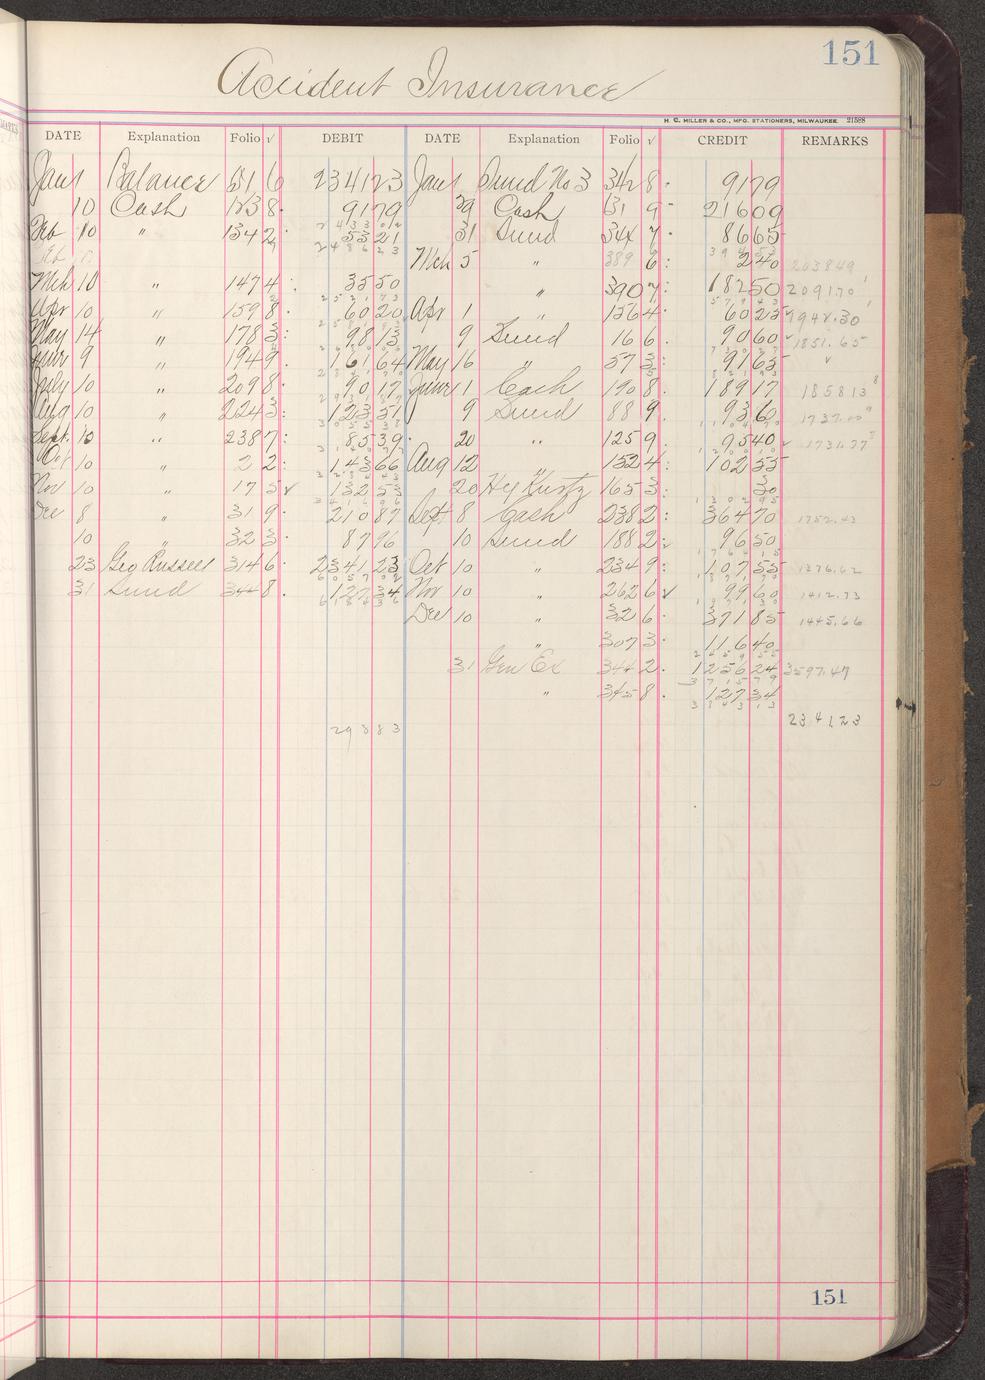 151
Accident Insurance
H. C. MILLER & CO., MFG. STATIONERS, MILWAUKEE 21588
DATE Explanation Folio √ DEBIT DATE Explanation Folio √ CREDIT REMARKS
Jan 1 Balance 6 234123 Jan 1 Sund No 3 342 8 9179
10 Cash 123 8 9179 29 Cash 131 9 21609
Feb 10 " 134 2 5321 31 Sund 34 7 8665
Mch 5 " 389 6 240 203849
Mch 10 " 147 4 3550 " 390 7 18250 209170
Apr 10 " 159 8 6020 Apr 1 " 156 4 6025 1948.30
May 14 " 178 3 9813 9 Sund 16 6 9060 1851.65
June 9 " 194 9 16164 May 16 " 57 3 9165
July 10 " 209 8 9017 June 1 Cash 190 8 18917 185813
Aug 10 " 224 3 12351 9 Sund 88 9 936 1737.00
Sept. 10 " 238 7 8539 20 " 125 9 9540 1731.77
Oct 10 " 2 2 14366 Aug 12 152 4 10255
Nov 10 " 17 5 √ 13255 20 Hy Kurtz 165 3 30
Dec 8 " 31 9 21087 Sept 8 Cash 238 2 36470 1752.43
10 " 32 3 8796 10 Sund 188 2 9650
23 Geo Russell 314 6 234123 Oct 10 " 234 9 10755 1376.62
31 Sund 344 8 12734 Nov 10 " 262 6 √ 9960 1412.73
Dec 10 " 32 6 37185 1445.66
" 307 3 11640
31 Gen Ex 344 2 125624 3597.47
" 345 8 12734
29883 234123
151